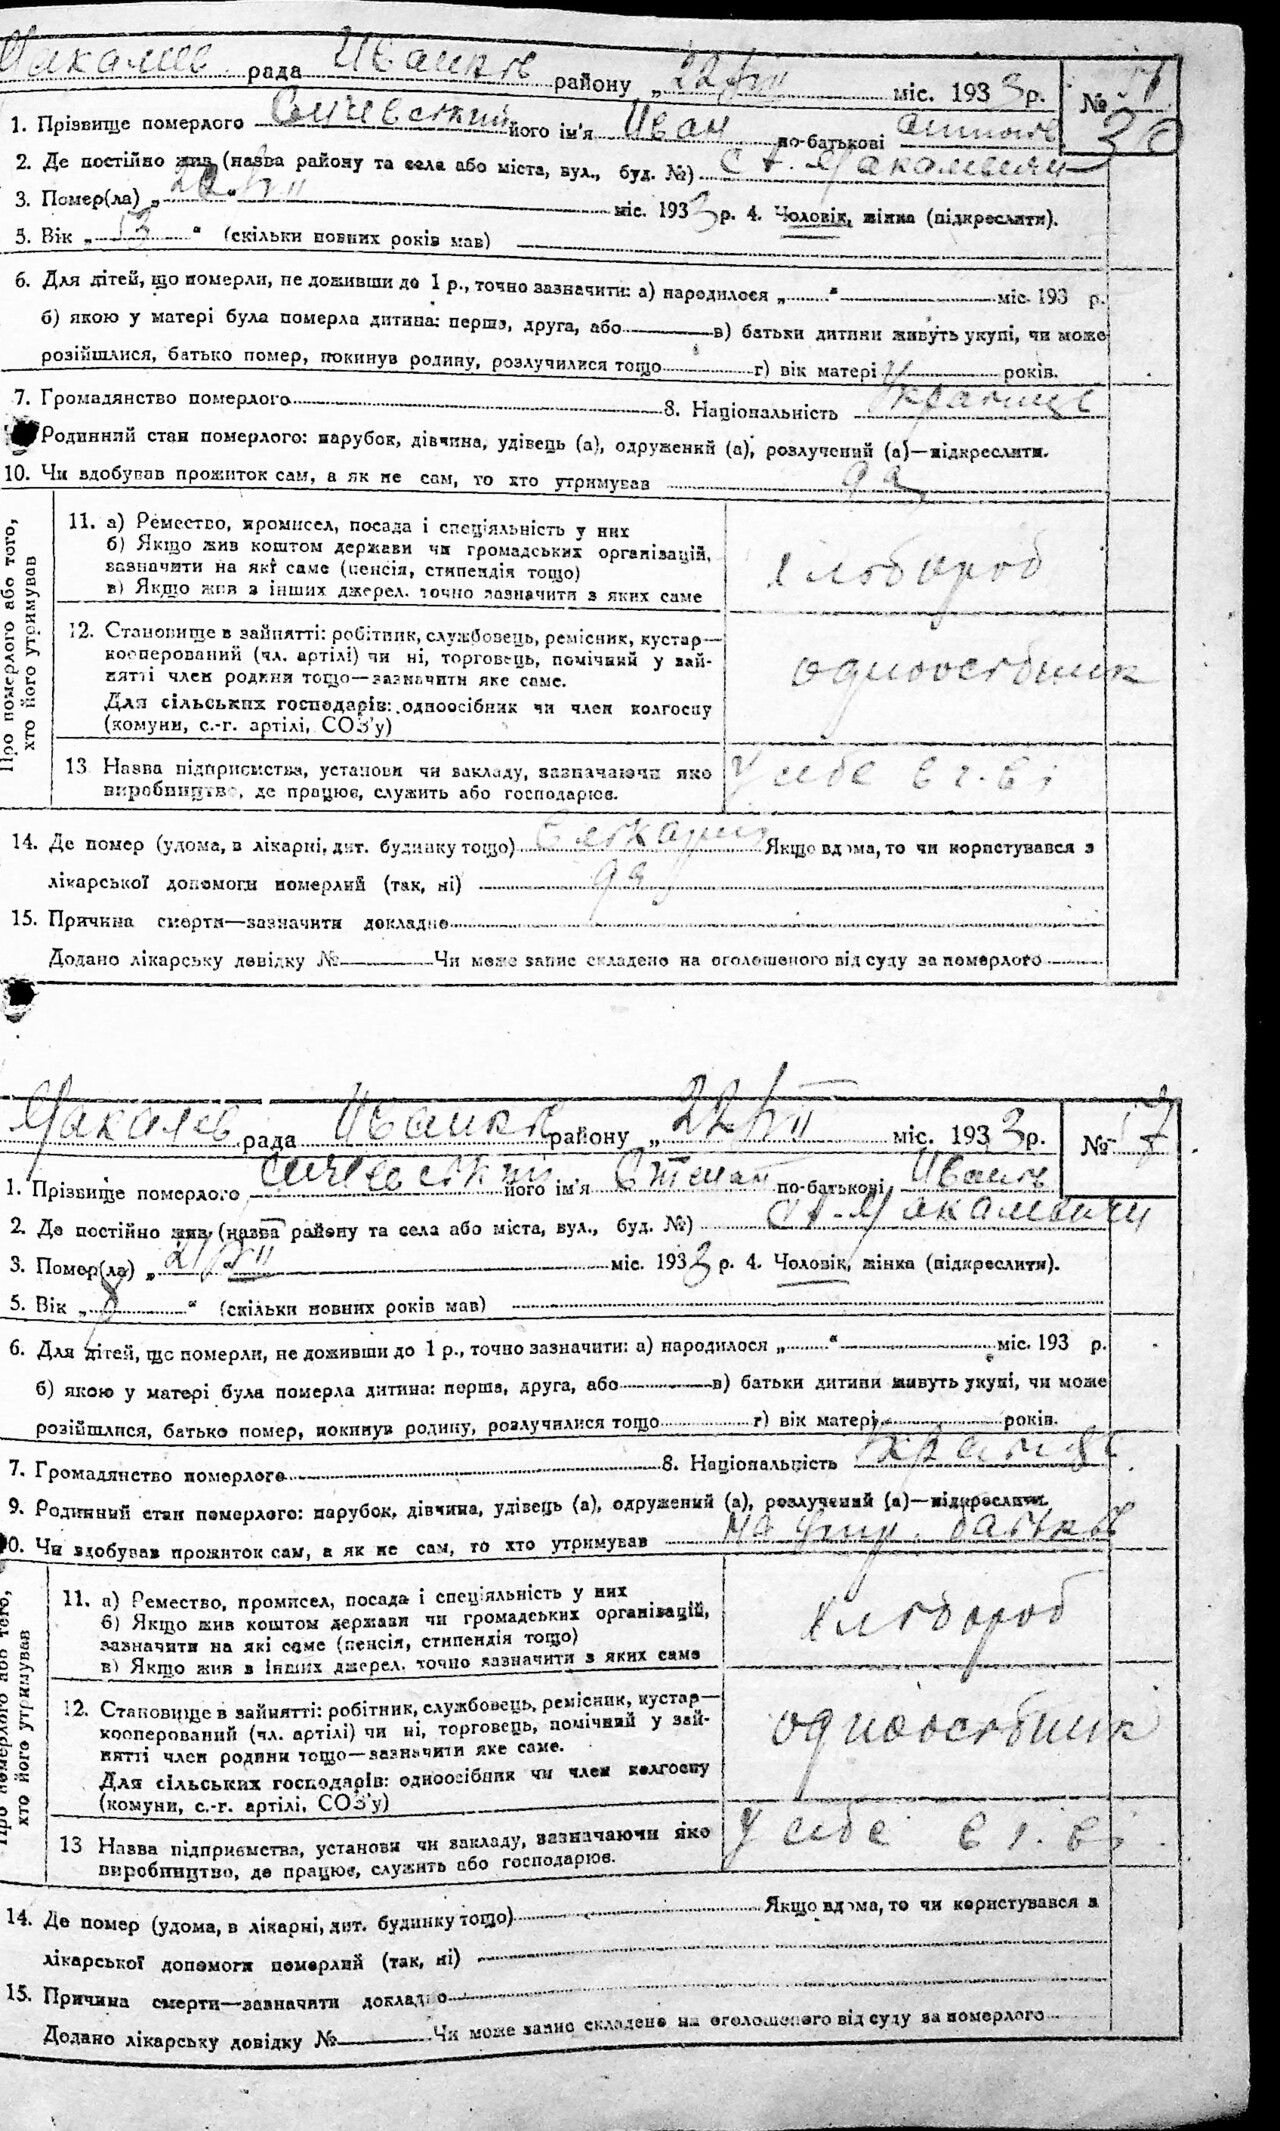 рада Иванків району „22/VII міс. 1933 р. №
1. Прізвище померлого Сичевський його ім'я Иван по-батькові
2. Де постійно жив (назва району та села або міста, вул., буд. №) с.
3. Помер(ла) „ міс. 1933 р. 4. Чоловік, жінка (підкреслити).
5. Вік „ “ (скільки повних років мав)
6. Для дітей, що померли, не доживши до 1 р., точно зазначити: а) народилося „ “ міс. 193 р.
б) якою у матері була померла дитина: перша, друга, або в) батьки дитини живуть укупі, чи може
розійшлися, батько помер, покинув родину, розлучилися тощо г) вік матері років.
7. Громадянство померлого 8. Національність украинец
Родинний стан померлого: парубок, дівчина, удівець (а), одружений (а), розлучений (а)—підкреслити.
10. Чи здобував прожиток сам, а як не сам, то хто утримував да
Про померлого або того,
хто його утримував
11. а) Ремество, промисел, посада і спеціяльність у них
б) Якщо жив коштом держави чи громадських організацій,
зазначити на які саме (пенсія, стипендія тощо)
в) Якщо жив з інших джерел. точно зазначити з яких саме
хлібороб
12. Становище в зайнятті: робітник, службовець, ремісник, кустар—
кооперований (чл. артілі) чи ні, торговець, помічний у зай-
нятті член родини тощо—зазначити яке саме.
Для сільських господарів: одноосібник чи член колгоспу
(комуни, с.-г. артілі, СОЗ'у)
одноосібник
13 Назва підприємства, установи чи закладу, зазначаючи яко
виробництво, де працює, служить або господарює.
У себе в г-ві
14. Де помер (удома, в лікарні, дит. будинку тощо) Якщо вдома, то чи користувався з
лікарської допомоги померлий (так, ні) да
15. Причина смерти—зазначити докладно
Додано лікарську довідку № Чи може запис складено на оголошеного від суду за померлого
рада Иванків району „22/VII міс. 1933 р. № 57
1. Прізвище померлого Сичевський його ім'я Степан по-батькові Иванів
2. Де постійно жив (назва району та села або міста, вул., буд. №)
3. Помер(ла) „21/VII міс. 1933 р. 4. Чоловік, жінка (підкреслити).
5. Вік „8“ (скільки повних років мав)
6. Для дітей, що померли, не доживши до 1 р., точно зазначити: а) народилося „ “ міс. 193 р.
б) якою у матері була померла дитина: перша, друга, або в) батьки дитини живуть укупі, чи може
розійшлися, батько помер, покинув родину, розлучилися тощо г) вік матері років.
7. Громадянство померлого 8. Національність украинец
9. Родинний стан померлого: парубок, дівчина, удівець (а), одружений (а), розлучений (а)—підкреслити.
10. Чи здобував прожиток сам, а як не сам, то хто утримував на утр. батьків
Про померлого або того,
хто його утримував
11. а) Ремество, промисел, посада і спеціяльність у них
б) Якщо жив коштом держави чи громадських організацій,
зазначити на які саме (пенсія, стипендія тощо)
в) Якщо жив в інших джерел. точно зазначити з яких саме
хлібороб
12. Становище в зайнятті: робітник, службовець, ремісник, кустар—
кооперований (чл. артілі) чи ні, торговець, помічний у зай-
нятті член родини тощо—зазначити яке саме.
Для сільських господарів: одноосібник чи член колгоспу
(комуни, с.-г. артілі, СОЗ'у)
одноосібник
13 Назва підприємства, установи чи закладу, зазначаючи яко
виробництво, де працює, служить або господарює.
У себе в г-ві
14. Де помер (удома, в лікарні, дит. будинку тощо) Якщо вдома, то чи користувався з
лікарської допомоги померлий (так, ні)
15. Причина смерти—зазначити докладно
Додано лікарську довідку № Чи може запис складено на оголошеного від суду за померлого